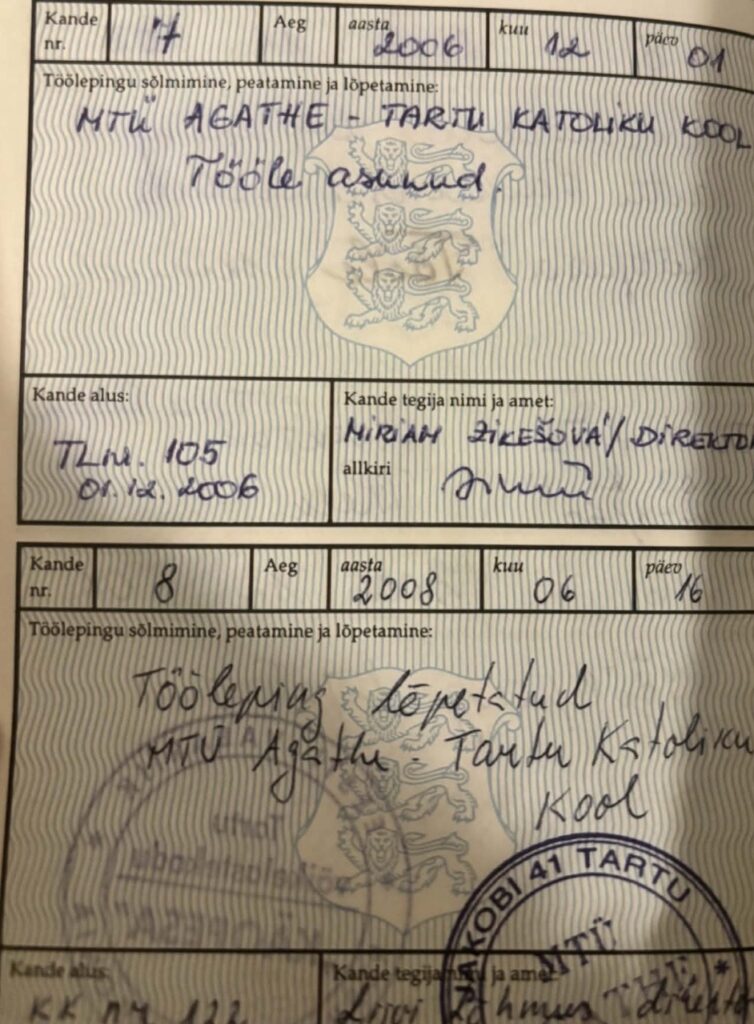 Kande nr. 7 Aeg aasta 2006 kuu 12 päev 01
Töölepingu sõlmimine, peatamine ja lõpetamine:
MTÜ AGATHE - TARTU KATOLIKU KOOL
Tööle asunud.
Kande alus:
TL nr. 105
01.12.2006
Kande tegija nimi ja amet:
MIRIAM ZIKEŠOVÁ / DIREKTO
allkiri
Kande nr. 8 Aeg aasta 2008 kuu 06 päev 16
Töölepingu sõlmimine, peatamine ja lõpetamine:
Tööleping lõpetatud
MTÜ Agathe - Tartu Katoliku
Kool
Tartu
JAKOBI 41 TARTU
MTÜ
Kande alus:
KK nr 122
Kande tegija nimi ja amet:
Lõhmus direkto